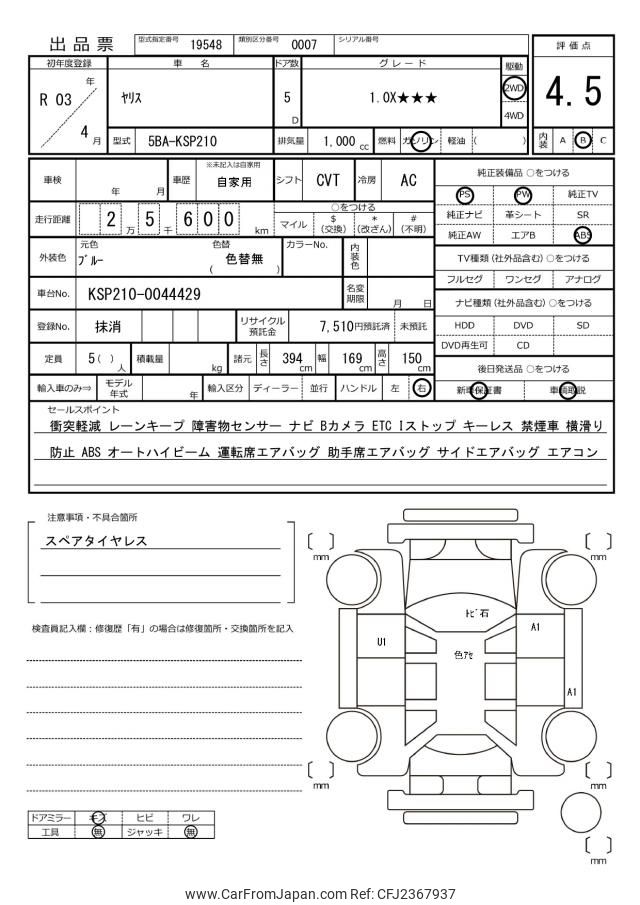 出品票 型式指定番号 19548 類別区分番号 0007 シリアル番号
評価点
4.5
内装 A B C
初年度登録 車名 ドア数 グレード 駆動
R 03 年 4 月 ヤリス 5 D 1.0X★★★ 2WD
4WD
型式 5BA-KSP210 排気量 1,000 cc 燃料 ガソリン 軽油 ( )
車検 年 月 車歴 ※未記入は自家用 自家用 シフト CVT 冷房 AC
走行距離 2 5 万 6 千 0 0 km
○をつける
マイル $ (交換) * (改ざん) # (不明)
外装色 元色 ブルー 色替 ( 色替無 ) カラーNo. 内装色
車台No. KSP210-0044429 名変期限 月 日
登録No. 抹消 リサイクル預託金 7,510円預託済 未預託
定員 5( ) 人 積載量 kg 諸元 長さ 394 cm 幅 169 cm 高さ 150 cm
輸入車のみ⇒ モデル年式 年 輸入区分 ディーラー 並行 ハンドル 左 右
純正装備品 ○をつける
PS PW 純正TV
純正ナビ 革シート SR
純正AW エアB ABS
TV種類 (社外品含む) ○をつける
フルセグ ワンセグ アナログ
ナビ種類 (社外品含む) ○をつける
HDD DVD SD
DVD再生可 CD
後日発送品 ○をつける
新車保証書 車輌取説
セールスポイント
衝突軽減 レーンキープ 障害物センサー ナビ Bカメラ ETC Iストップ キーレス 禁煙車 横滑り
防止 ABS オートハイビーム 運転席エアバッグ 助手席エアバッグ サイドエアバッグ エアコン
注意事項・不具合箇所
スペアタイヤレス
検査員記入欄：修復歴「有」の場合は修復箇所・交換箇所を記入
ドアミラー キズ ヒビ ワレ
工具 無 ジャッキ 無
mm mm
トビ石
U1 A1
色アセ
A1
mm mm
mm
www.CarFromJapan.com Ref: CFJ2367937